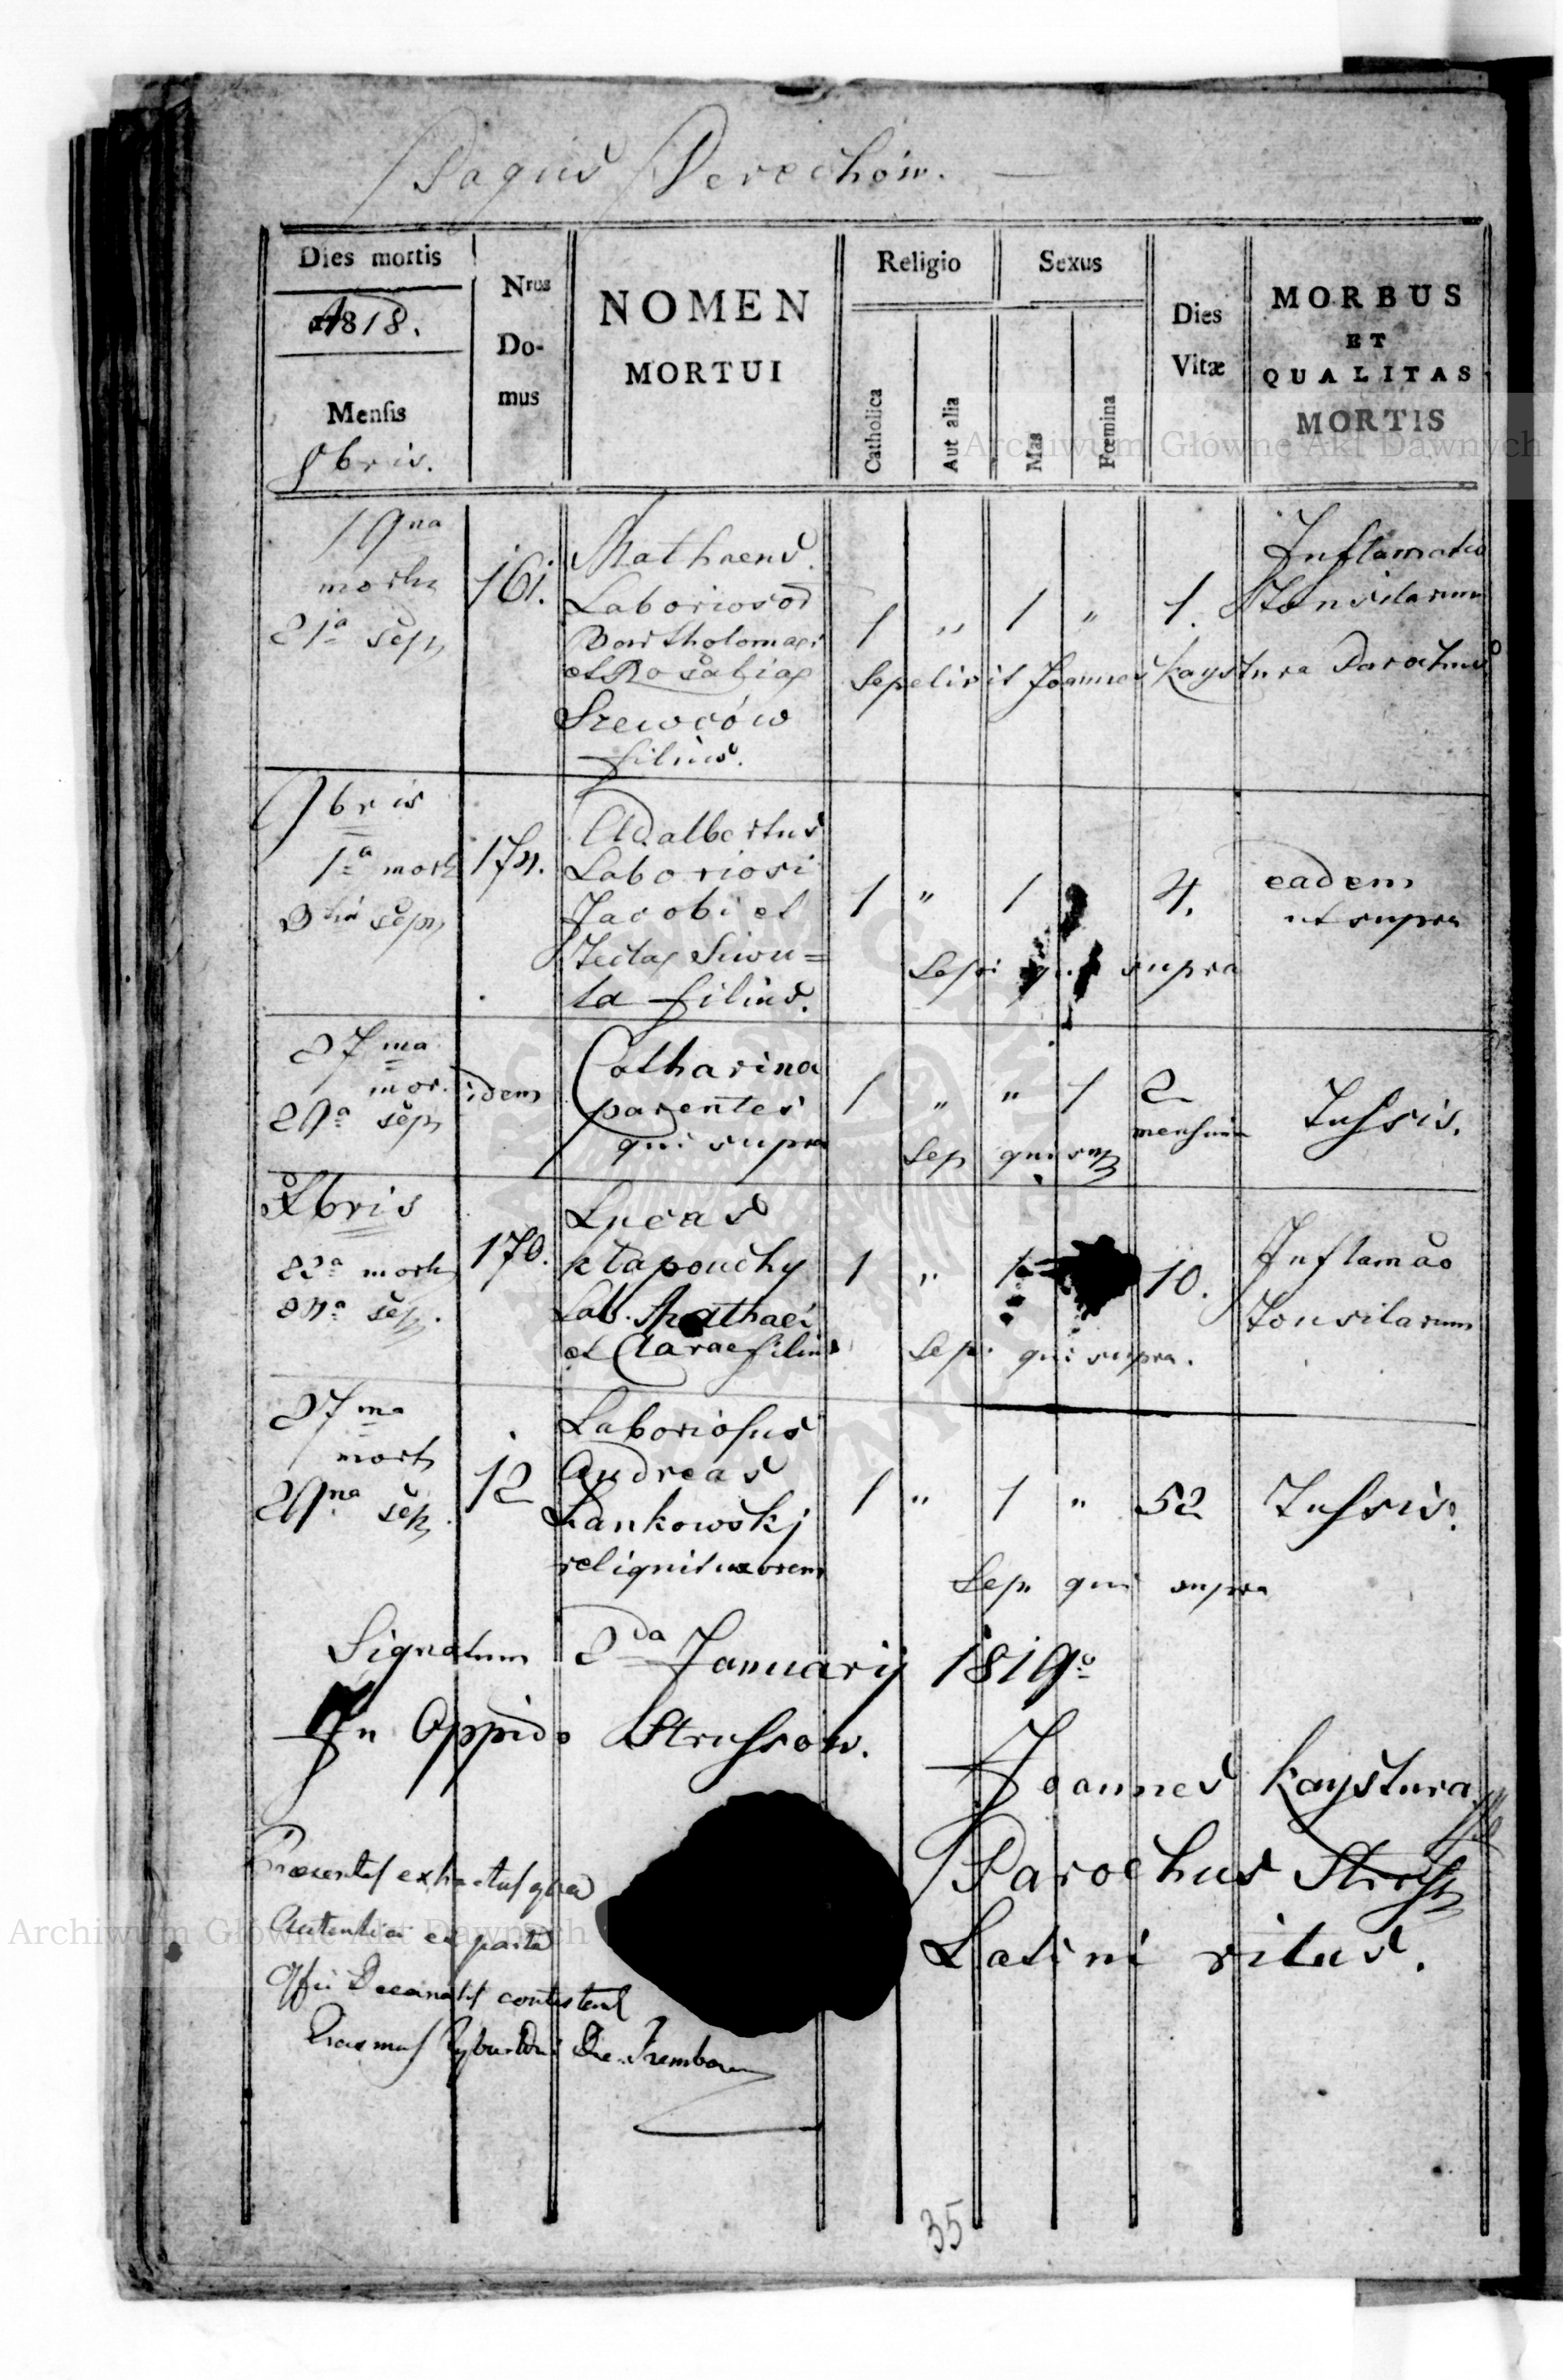 Pagus Derechów. —
Dies mortis
1818.
Mensis
8bris.
Nrus
Do-
mus
NOMEN
MORTUI
Religio
Catholica
Aut alia
Sexus
Mas
Fœmina
Dies
Vitæ
MORBUS
ET
QUALITAS
MORTIS
19na
21a sep
161.
Mathaeus
Bartholomaei
et Rosaliae
Szewców
filius.
1 " 1 " 1.
Inflamatio
Tonsilarum
Sepelivit Joannes Kaystura Parochus
9bris
1a mort
3tia sep
174.
Adalbertus
Laboriosi
Jacobi et
Teclae Siwu=
la filius.
1 " 1 4.
eadem
ut supra
Sep: qui supra
27ma
mor.
29a sep
idem
Catharina
parentes
qui supra
1 " " 1 2
mensium
Tussis.
Sep qui sup
Xbris
22a mort
24a sep.
170.
Lucas
Kłapouchy
Lab. Mathaei
et Clarae filius
1 " 1 10.
Inflamao
Tonsilarum
Sep: qui supra.
27ma
mort
29na sep.
12
Laboriosus
Andreas
Łankowskj
reliquit uxorem
1 " 1 " 52
Tussis.
Sep qui supra
Signatum 2da Januarij 1819o
In Oppido Strussow.
Joannes Kaystura
Parochus Struss
Latini ritus.
Praesentes extractus qua
Autentica ex parte
Offii Decanalis contestand
Erasmus Dec. Trembow
35
Archiwum Główne Akt Dawnych
Archiwum Główne Akt Dawnych